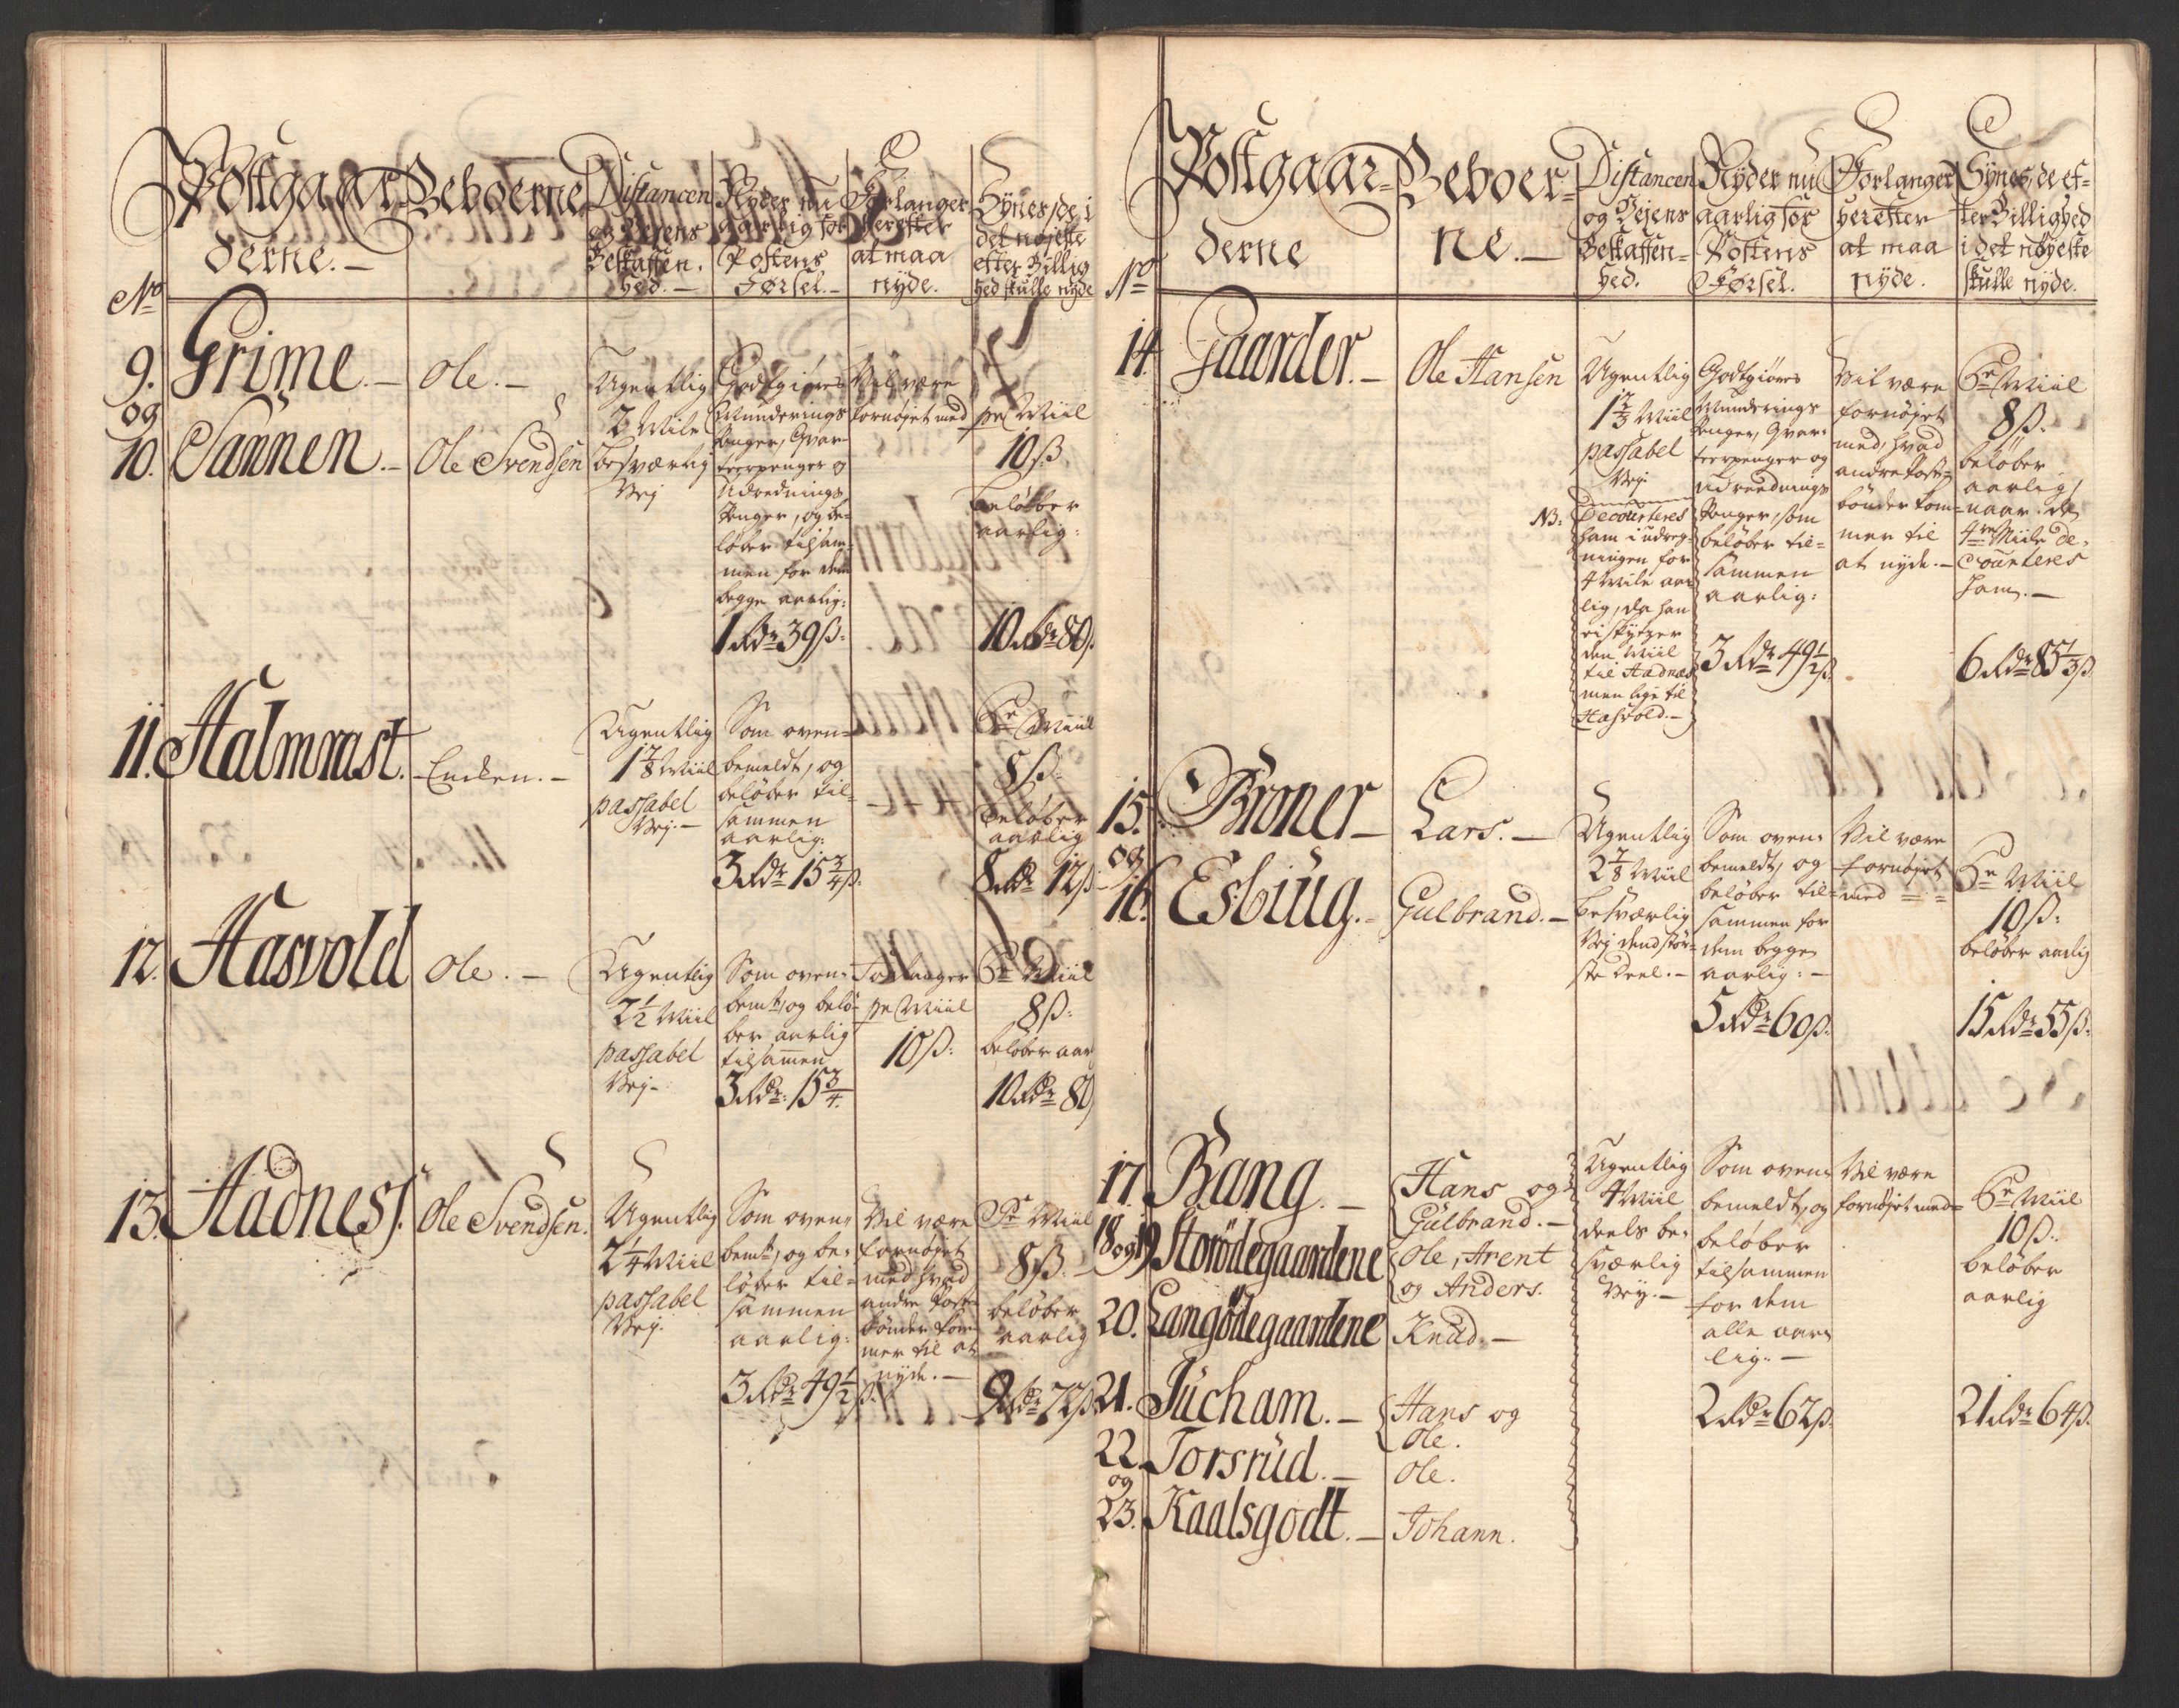 Postgaar-
derne.-
Beboerne
Distancen
og Vejens
Beskaffen-
hed.-
Nyder nu
aarlig for
Postens
Førsel.-
Forlanger
herefter
at maa
nyde.
Synes, de i
det nøjeste
efter Billig
hed skulle nyde
No
9. Grime.- Ole.-
og
10. Sannen.- Ole Svendsen
Ugentlig
2 Mile
besværlig
Vej
Godtgiøres
Munderings
Penger, Qvar-
teerpenger og
Udrednings
Penger, og be-
løber tilsam-
men for dem
begge aarlig:
1 Rdr 39 ß:
Vil være
fornøjet med
pr Miil
10 ß
beløber
aarlig:
10 Rdr 80 ß
11. Halmrast. Encken.-
Ugentlig
1 7/8 Miil
passabel
Vej.-
Som oven-
bemeldt, og
beløber til-
sammen
aarlig:
3 Rdr 15 3/4 ß:
Pr Miil
8 ß:
beløber
aarlig
8 Rdr 12 ß:
12. Hasvold Ole.-
Ugentlig
2 1/2 Miil
passabel
Vej-
Som oven-
bemt, og belø-
ber aarlig
tilsammen
3 Rdr: 15 3/4.
Forlanger
pr Miil
10 ß:
Pr Miil
8 ß:
beløber aar
10 Rdr 80
13. Hadness. Ole Svendsen.
Ugentlig
2 1/4 Miil
passabel
Vej.
Som oven-
bemt, og be-
løber til-
sammen
aarlig:
3 Rdr 49 1/2 ß.
Vil være
fornøjet
med hvad
andre Post-
bønder kom-
mer til at
nyde.-
Pr Miil
8 ß.-
beløber
aarlig
9 Rdr 72 ß
Postgaar-
derne
Beboer-
ne.-
Distancen
og Vejens
Beskaffen-
hed.
Nyder nu
aarlig for
Postens
Førsel.
Forlanger
herefter
at maa
nyde.
Synes, de ef-
ter Billighed
i det nøyeste
skulle nyde.
No
14. Gaarder.- Ole Hansen
Ugentlig
1 2/3 Miil
passabel
Vej.
NB: Decourteres
ham i udreg-
ningen for
4 Mile aar
lig, da han
ei skydzer
den Miil
til Hadness
men lige til
Hasvold.-
Godtgiøres
Munderings
Penger, Qvar-
teerpenger og
Udreednings
Penger, som
beløber til-
sammen
aarlig:
3 Rdr 49 1/2 ß.
Vil være
fornøjet
med, hvad
andre Post-
bønder kom-
mer til
at nyde.-
Pr Miil
8 ß.
beløber
aarlig,
naar de
4re Miile de-
counteres
ham.-
6 Rdr 83 1/3 ß
15. Broner- Lars.-
og
16. Esbiug.- Gulbrand.-
Ugentlig
2 7/8 Miil
besværlig
Vej dend stør-
ste Deel.-
Som oven-
bemeldt, og
beløber til-
sammen for
dem begge
aarlig:-
5 Rdr 60 ß.
Vil være
fornøjet
med
Pr Miil
10 ß:
beløber aarlig
15 Rdr 55 ß:
17. Bang.- Hans og
Gülbrand.-
18 og 19 Storødegaardene Ole, Arent
og Anders.
20. Langødegaardene Knud.-
21. Jucham.- Hans og
Ole.
22. Torsrud.- Ole.
og
23. Kaalsgodt.- Johann.
Ugentlig
4 Miil
deels be-
sværlig
Vej.-
Som oven-
bemeldt, og
beløber
tilsammen
for dem
alle aar-
lig:-
2 Rdr 62 ß.
Vil være
fornøjet med
Pr Miil
10 ß:
beløber
aarlig
21 Rdr 64 ß.